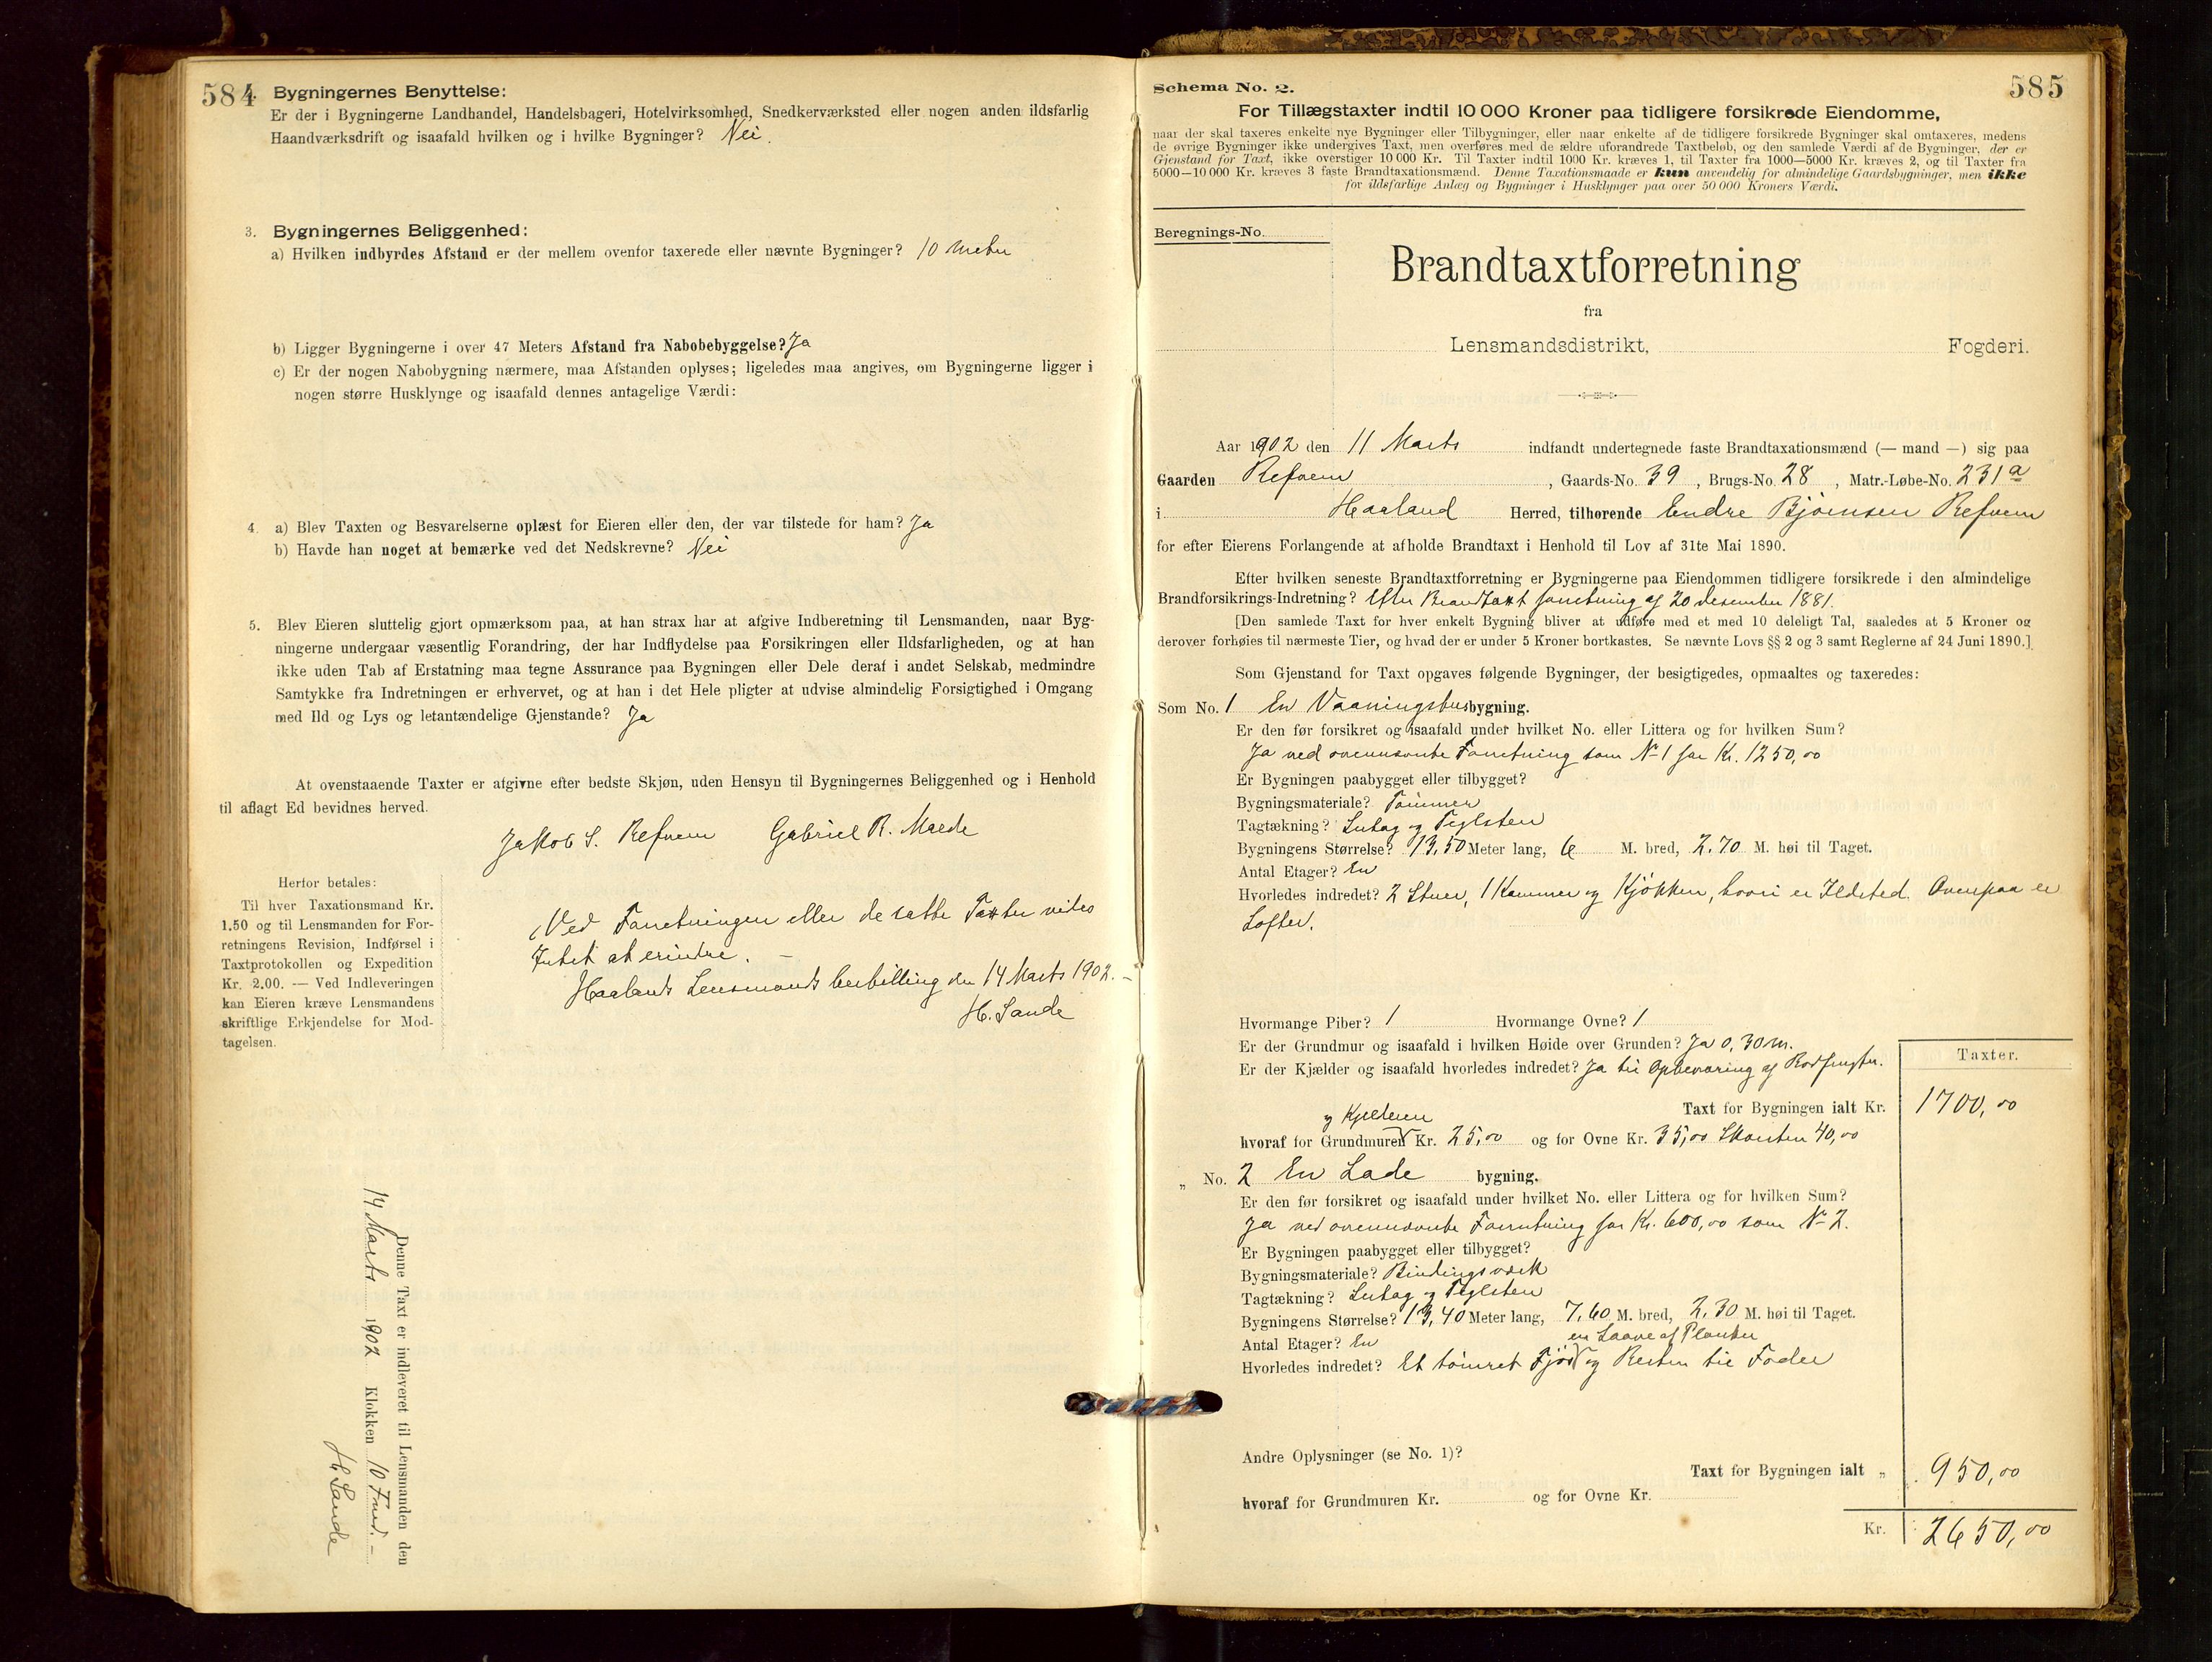 584
Bygningernes Benyttelse:
Er der i Bygningerne Landhandel, Handelsbageri, Hotelvirksomhed, Snedkerværksted eller nogen anden ildsfarlig
Haandværksdrift og isaafald hvilken og i hvilke Bygninger? Nei.
3. Bygningernes Beliggenhed:
a) Hvilken indbyrdes Afstand er der mellem ovenfor taxerede eller nævnte Bygninger? 10 Meter
b) Ligger Bygningerne i over 47 Meters Afstand fra Nabobebyggelse? Ja
c) Er der nogen Nabobygning nærmere, maa Afstanden oplyses; ligeledes maa angives, om Bygningerne ligger i
nogen større Husklynge og isaafald dennes antagelige Værdi:
4. a) Blev Taxten og Besvarelserne oplæst for Eieren eller den, der var tilstede for ham? Ja
b) Havde han noget at bemærke ved det Nedskrevne? Nei
5. Blev Eieren sluttelig gjort opmærksom paa, at han strax har at afgive Indberetning til Lensmanden, naar Byg-
ningerne undergaar væsentlig Forandring, der har Indflydelse paa Forsikringen eller Ildsfarligheden, og at han
ikke uden Tab af Erstatning maa tegne Assurance paa Bygningen eller Dele deraf i andet Selskab, medmindre
Samtykke fra Indretningen er erhvervet, og at han i det Hele pligter at udvise almindelig Forsigtighed i Omgang
med Ild og Lys og letantændelige Gjenstande? Ja
At ovenstaaende Taxter er afgivne efter bedste Skjøn, uden Hensyn til Bygningernes Beliggenhed og i Henhold
til aflagt Ed bevidnes herved.
Jakob S. Refvem Gabriel R. Maede
Herfor betales:
Til hver Taxationsmand Kr.
1.50 og til Lensmanden for For-
retningens Revision, Indførsel i
Taxtprotokollen og Expedition
Kr. 2.00. — Ved Indleveringen
kan Eieren kræve Lensmandens
skriftlige Erkjendelse for Mod-
tagelsen.
Ved Forretningen eller de satte Taxter vides
Intet at erindre. –
Haalands Lensmands bestilling den 14 Marts 1902. –
H. Sande
Denne Taxt er indleveret til Lensmanden den
14 Marts 1902 Klokken 10 Form. –
H. Sande
585
Schema No. 2.
For Tillægstaxter indtil 10 000 Kroner paa tidligere forsikrede Eiendomme,
naar der skal taxeres enkelte nye Bygninger eller Tilbygninger, eller naar enkelte af de tidligere forsikrede Bygninger skal omtaxeres, medens
de øvrige Bygninger ikke undergives Taxt, men overføres med de ældre uforandrede Taxtbeløb, og den samlede Værdi af de Bygninger, der er
Gjenstand for Taxt, ikke overstiger 10 000 Kr. Til Taxter indtil 1000 Kr. kræves 1, til Taxter fra 1000—5000 Kr. kræves 2, og til Taxter fra
5000—10 000 Kr. kræves 3 faste Brandtaxationsmænd. Denne Taxationsmaade er kun anvendelig for almindelige Gaardsbygninger, men ikke
for ildsfarlige Anlæg og Bygninger i Husklynger paa over 50 000 Kroners Værdi.
Beregnings-No.
Brandtaxtforretning
fra
Lensmandsdistrikt, Fogderi.
Aar 1902 den 11 Marts indfandt undertegnede faste Brandtaxationsmænd (— mand —) sig paa
Gaarden Refvem, Gaards-No. 39, Brugs-No. 28, Matr.-Løbe-No. 231a
i Haaland Herred, tilhørende Endre Bjørnsen Refvem
for efter Eierens Forlangende at afholde Brandtaxt i Henhold til Lov af 31te Mai 1890.
Efter hvilken seneste Brandtaxtforretning er Bygningerne paa Eiendommen tidligere forsikrede i den almindelige
Brandforsikrings-Indretning? Efter Brandtaxt forretning af 20 desember 1881.
[Den samlede Taxt for hver enkelt Bygning bliver at udføre med et med 10 deleligt Tal, saaledes at 5 Kroner og
derover forhøies til nærmeste Tier, og hvad der er under 5 Kroner bortkastes. Se nævnte Lovs §§ 2 og 3 samt Reglerne af 24 Juni 1890.]
Som Gjenstand for Taxt opgaves følgende Bygninger, der besigtigedes, opmaaltes og taxeredes:
Som No. 1 En Vaaningshusbygning.
Er den før forsikret og isaafald under hvilket No. eller Littera og for hvilken Sum?
Ja ved ovennævnte Forretning som N- 1 for Kr. 1250,00
Er Bygningen paabygget eller tilbygget?
Bygningsmateriale? Tømmer
Tagtækning? Sutag og Teglsten
Bygningens Størrelse? 13,50 Meter lang, 6 M. bred, 2.70 M. høi til Taget.
Antal Etager? En
Hvorledes indredet? 2 Stuer, 1 Kammer og Kjøkken, hvori er Ildsted. Ovenpaa er
Lofter.
Hvormange Piber? 1 Hvormange Ovne? 1
Er der Grundmur og isaafald i hvilken Høide over Grunden? Ja 0,30 m.
Er der Kjælder og isaafald hvorledes indredet? Ja til Opbevaring af Rodfrugter.
Taxter.
Taxt for Bygningen ialt Kr. 1700,00
og Kjelderen
hvoraf for Grundmuren Kr. 25,00 og for Ovne Kr. 35,00 Skorsten 40,00
„ No. 2 En Lade bygning.
Er den før forsikret og isaafald under hvilket No. eller Littera og for hvilken Sum?
Ja ved ovennævnte Forretning for Kr. 600,00 som N- 2.
Er Bygningen paabygget eller tilbygget?
Bygningsmateriale? Bindingsværk
Tagtækning? Sutag og Teglsten
Bygningens Størrelse? 13,40 Meter lang, 7,60 M. bred, 2,30 M. høi til Taget.
Antal Etager? En
en Laave af Planker
Hvorledes indredet? Et tømret Fjøs og Resten til Foder
Andre Oplysninger (se No. 1)?
Taxt for Bygningen ialt „ 950,00
hvoraf for Grundmuren Kr. og for Ovne Kr.
Kr. 2650,00